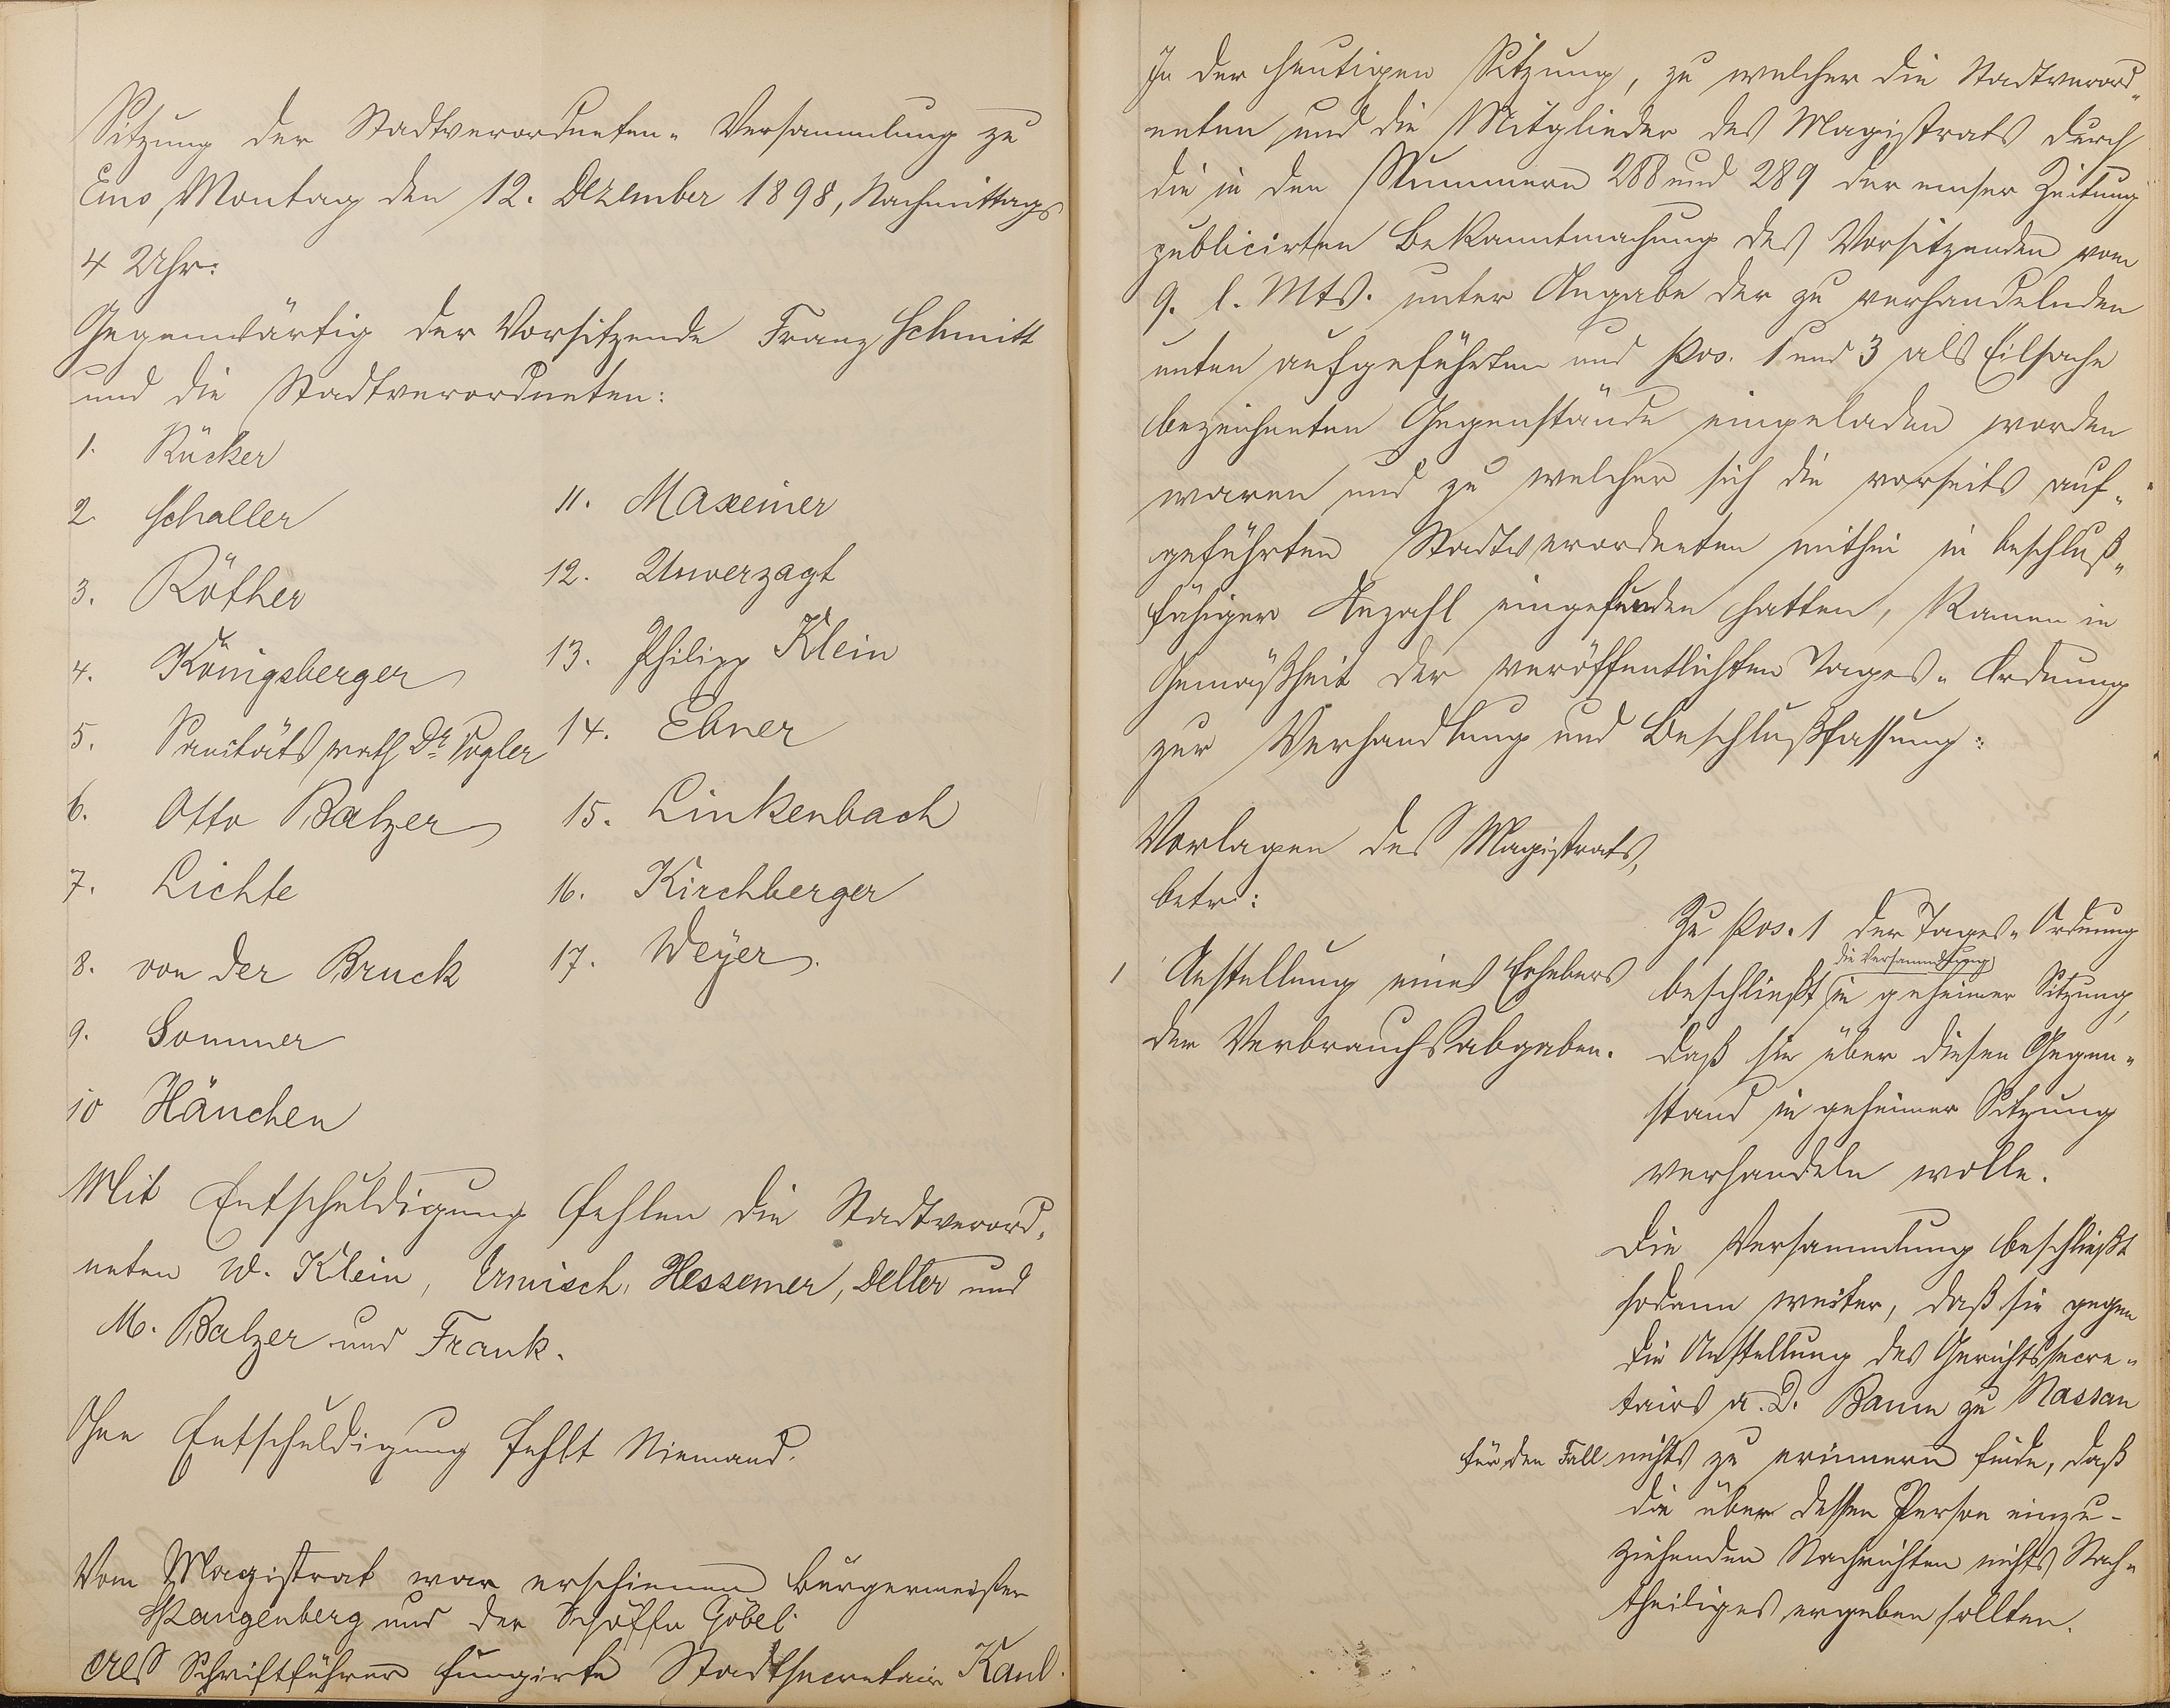 Sitzung der Stadtverordneten-Versammlung zu
Ems, Montag den 12. Dezember 1898, Nachmittags
4 Uhr:
Gegenwärtig der Vorsitzende Franz Schmitt
und die Stadtverordneten:
1. Rücker
2. Schaller
3. Röther
4. Königsberger
5. Sanitätsrath Dr. Vogler
6. Otto Balzer
7. Lichte
8. von der Bruck
9. Sommer
10 Hänchen
11. Maxeiner
12. Unverzagt
13. Philipp Klein
14. Ebner
15. Linkenbach
16. Kirchberger
17. Weyer.
Mit Entschuldigung fehlen die Stadtverord-
neten W. Klein, Ermisch, Hessemer, Deller und
M. Balzer und Frank.
Ohne Entschuldigung fehlt Niemand.
Vom Magistrat war erschienen Bürgermeister
Spangenberg und der Schöffe Göbel.
Als Schriftführer fungirte Stadtsecretair Kaul.
In der heutigen Sitzung, zu welcher die Stadtverord-
neten und die Mitglieder des Magistrats durch
die in den Nummern 288 und 289 der emser Zeitung
publicirten Bekanntmachung des Vorsitzenden vom
9. l. Mts. unter Angabe der zu verhandelnden
unten aufgeführten und Pos. 1 und 3 als Eilsache
bezeichneten Gegenstände eingeladen worden
waren und zu welcher sich die vorseits auf-
geführten Stadtverordneten mithin in beschluß-
fähiger Anzahl eingefunden hatten, kamen in
Gemäßheit der veröffentlichten Tages-Ordnung
zur Verhandlung und Beschlußfassung:
Vorlagen des Magistrats,
betr:
1 Anstellung eines Erhebers
der Verbrauchsabgaben.
Zu Pos. 1 der Tages-Ordnung
die Versammlung
beschließt in geheimer Sitzung,
daß sie über diesen Gegen-
stand in geheimer Sitzung
verhandeln wolle.
Die Versammlung beschließt
sodann weiter, daß sie gegen
die Anstellung des Gerichtssecre-
tairs a. D. Baum zu Nassau
für den Fall nichts zu erinnern finde, daß
die über dessen Person einzu-
ziehenden Nachrichten nichts Nach-
theiliges ergeben sollten.